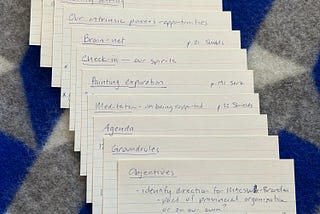 Our intrinsic powers - opportunities
Brain-net p. 21
Check-in — our spirits
Painting exploration p. 191
Meditation - on being supported p. 62
Agenda
Groundrules
Objectives
- identify direction for Brandon
- part of provincial organization
or on our own?